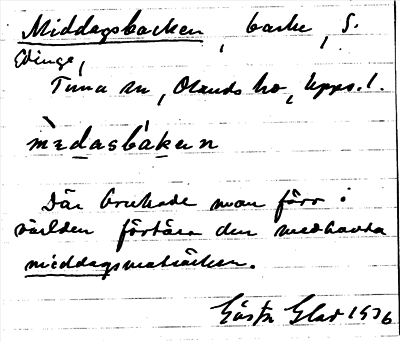 Middagsbacken, backe, S.
Edinge,
Tuna sn, Olands hd, Upps. l.
mèdasbákən
Där brukade man förr i
världen förtära den medhavda
middagsmatsäcken.
Gösta Glad 1936